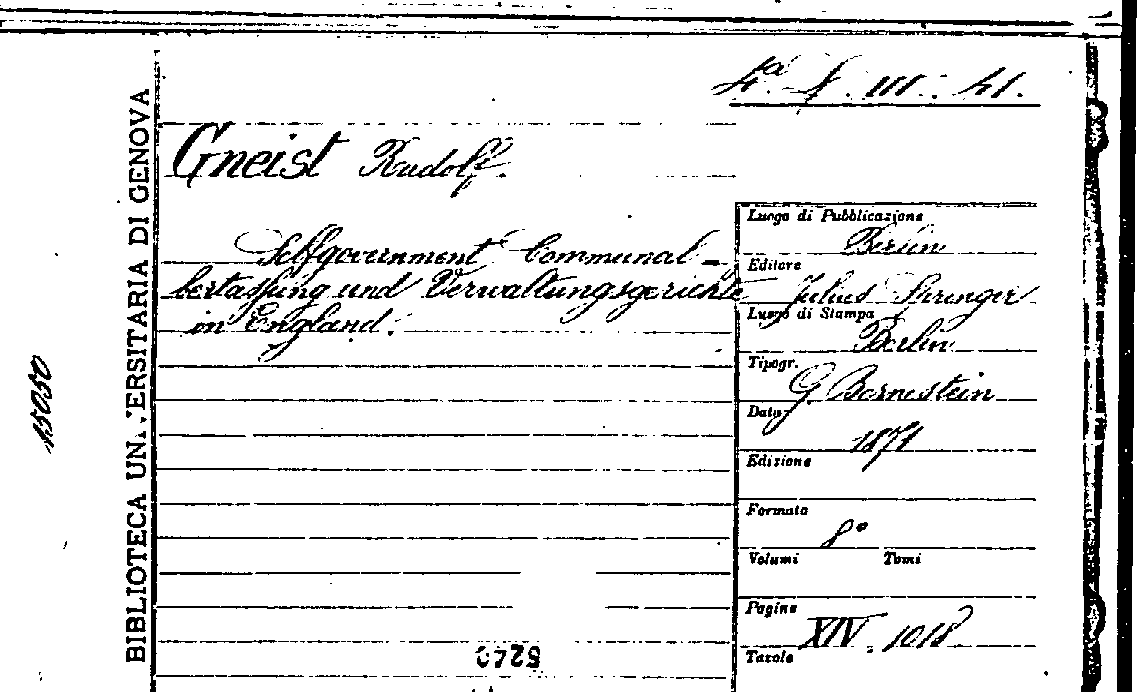 4ª. f. III. 41.
Gneist Rudolf.
Selfgovernment Communal-
bertassung und Verwaltungsgerichte
in England.
Luogo di Pubblicazione
Berlin
Editore
Julius Springer
Luogo di Stampa
Berlin
Tipogr.
G. Bernestein
Data
1871
Edizione
Formato
8°
Volumi Tomi
Pagine
XIV. 1018
Tavole
BIBLIOTECA UNIVERSITARIA DI GENOVA
15050